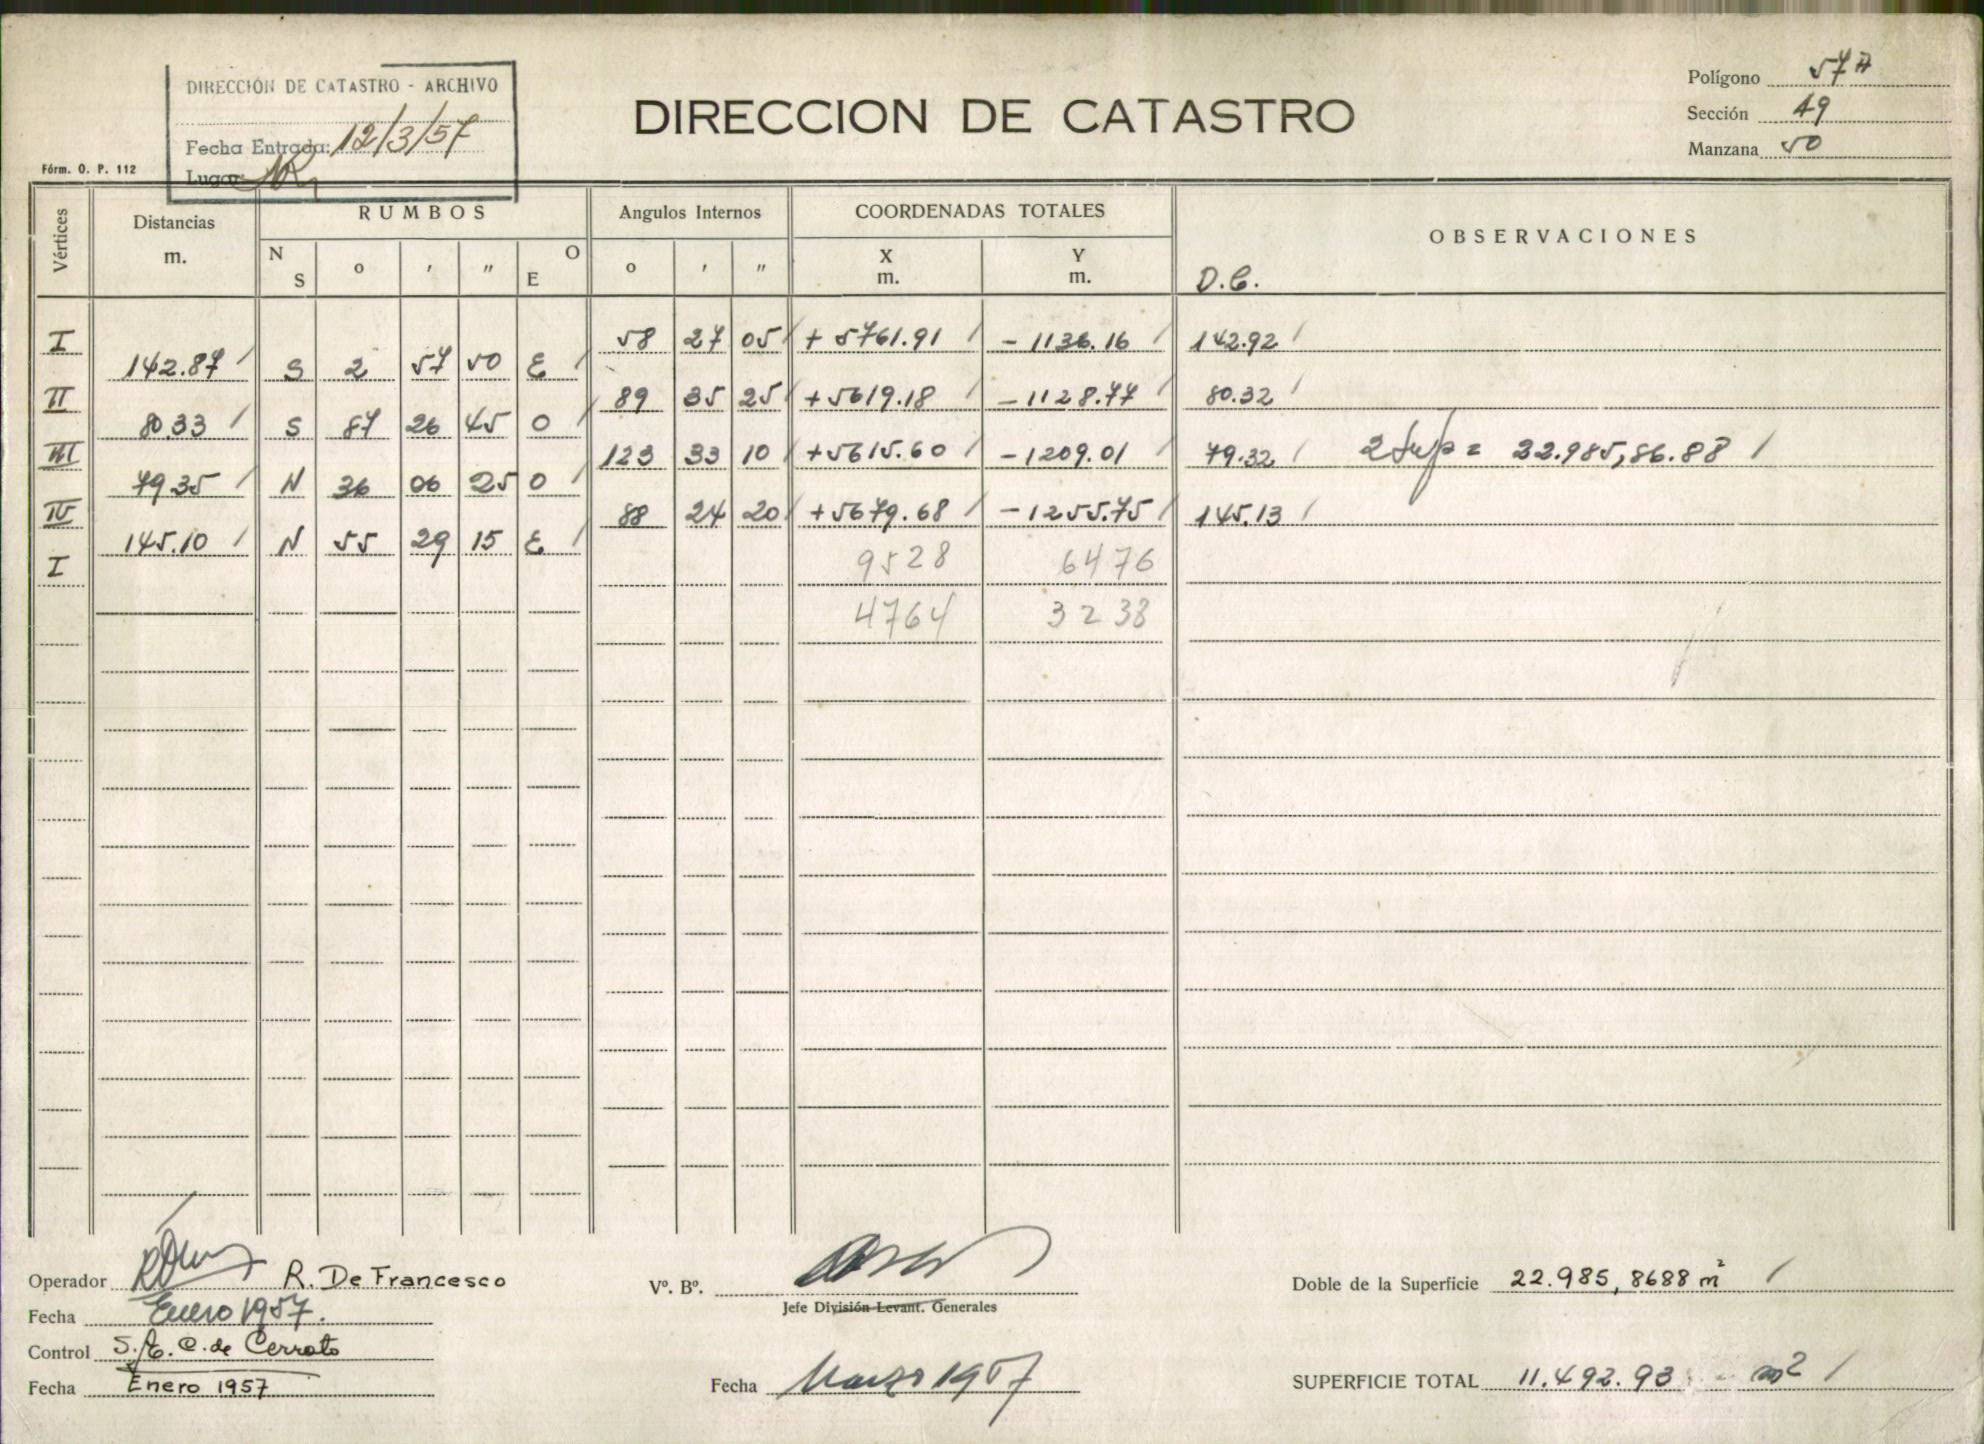 DIRECCIÓN DE CATASTRO - ARCHIVO
Fecha Entrada: 12/3/57
Lugar
Fórm. O. P. 112
DIRECCION DE CATASTRO
Polígono 57A
Sección 49
Manzana 50
Vértices Distancias m. RUMBOS Angulos Internos COORDENADAS TOTALES OBSERVACIONES
N S o ' " O E o ' " X m. Y m. D.C.
I 58 27 05 + 5761.91 - 1136.16 142.92
142.87 S 2 57 50 E
II 89 35 25 + 5619.18 - 1128.77 80.32
80.33 S 87 26 45 O
III 123 33 10 + 5615.60 - 1209.01 79.32 2 Sup = 22.985,86.88
79.35 N 36 06 25 O
IV 88 24 20 + 5679.68 - 1255.75 145.13
145.10 N 55 29 15 E
I 9528 6476
4764 3238
Operador R. De Francesco
Fecha Enero 1957.
Control S.E.C. de Cerrato
Fecha Enero 1957
Vº. Bº.
Jefe División Levant. Generales
Fecha Marzo 1957
Doble de la Superficie 22.985,8688 m²
SUPERFICIE TOTAL 11.492.93 m²